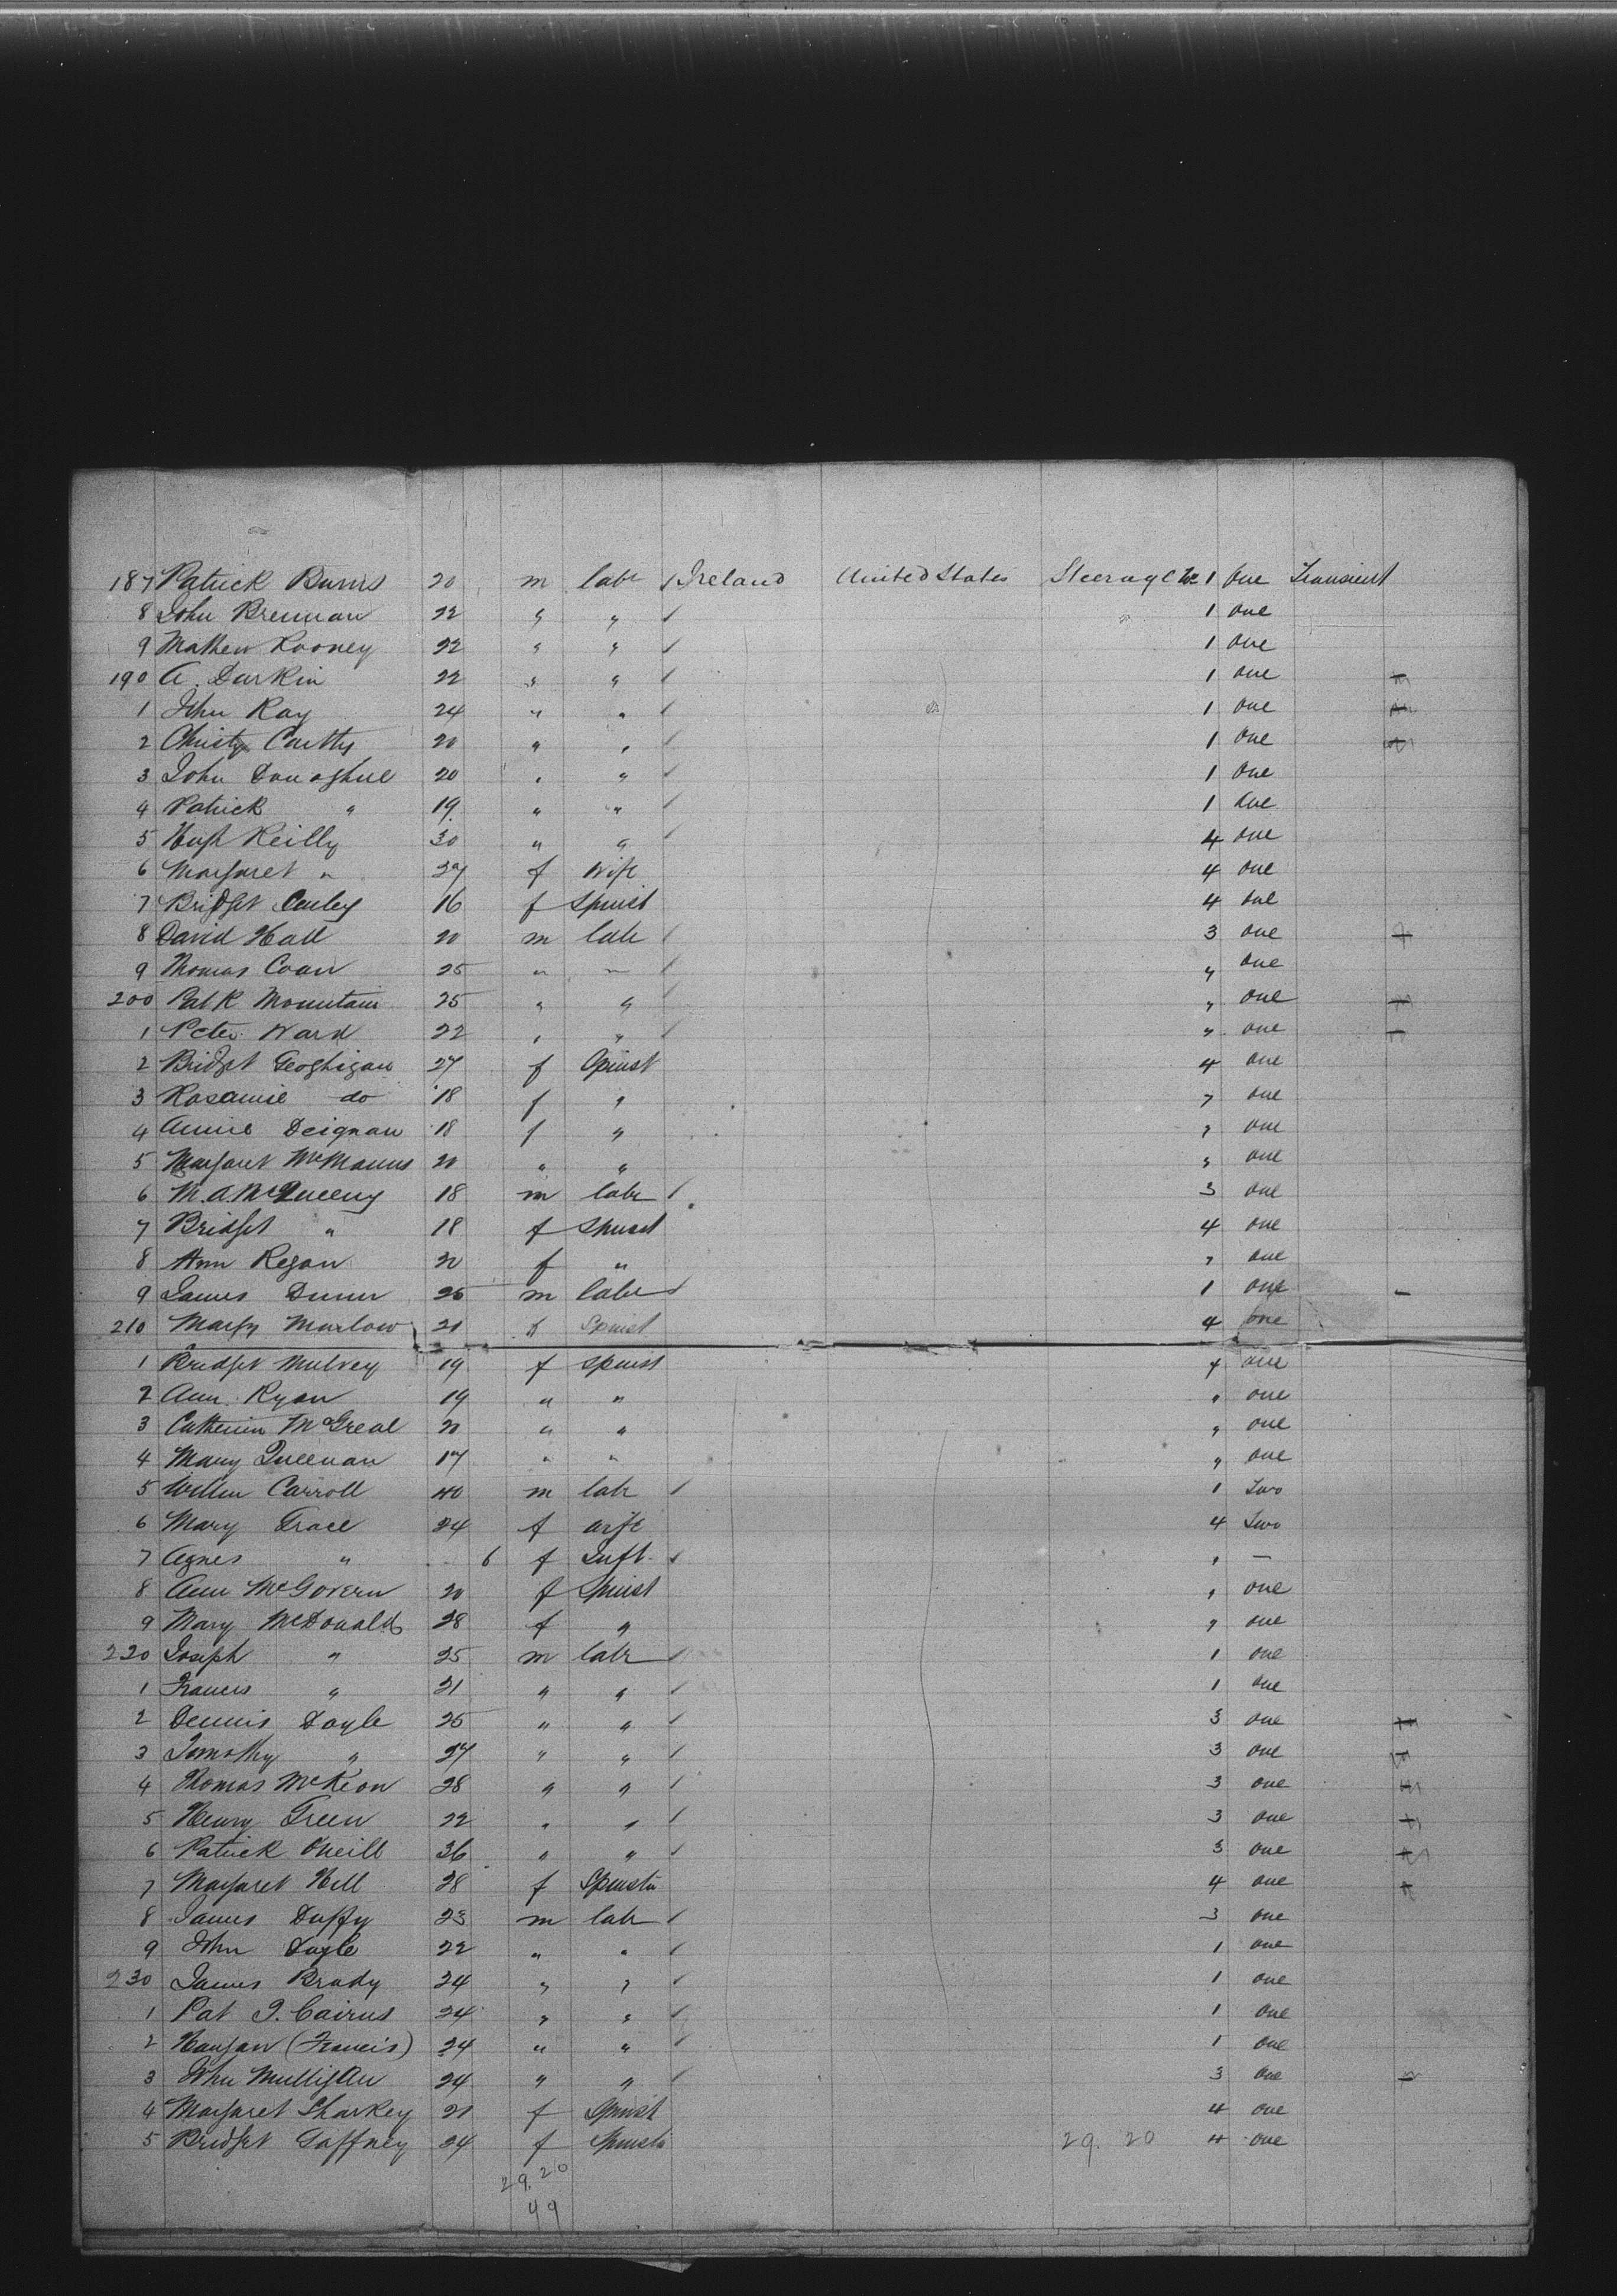 187 Patrick Burns 20 m labr Ireland United States Steerage No 1 One Transient
8 John Brennan 22 " " 1 One
9 Mathew Rooney 22 " " 1 One
190 A. Durkin 22 " " 1 One
1 John Ray 24 " " 1 One
2 Christy Cartty 20 " " 1 One
3 John Donoghue 20 " " 1 One
4 Patrick " 19 " " 1 One
5 Hugh Reilly 30 " " 4 one
6 Margaret " 27 f Wife 4 one
7 Bridget 16 f Spinst 4 one
8 David Hall 20 m labr 3 one
9 Thomas Coan 25 " " " one
200 Patk Mountain 25 " " " one
1 Peter Ward 22 " " " one
2 Bridget Geoghigan 27 f Spinst 4 one
3 Rosannie do 18 f " " one
4 Annie Deignan 18 f " " one
5 Margaret McManus 20 " " " one
6 M.A. McQueeny 18 m labr 3 one
7 Bridget " 18 f Spinst 4 one
8 Ann Regan 20 f " " one
9 James Dunn 25 m labr 1 one
210 Marly Marlow 21 f Spinst 4 one
1 Bridget Mulvey 19 f Spinst 4 one
2 Ann Ryan 19 " " " one
3 Catherin McGreal 20 " " " one
4 Mary Queenan 17 " " " one
5 Willm Carroll 40 m labr 1 Two
6 Mary Grace 24 f wife 4 Two
7 Agnes " 6 f Inft " —
8 Ann McGovern 20 f Spinst " one
9 Mary McDonald 28 f " " one
220 Joseph " 25 m labr 1 one
1 Francis " 21 " " 1 one
2 Dennis Doyle 25 " " 3 one
3 Tomothy " 27 " " 3 one
4 Thomas McKeon 28 " " 3 one
5 Henry Green 22 " " 3 one
6 Patrick Oneill 36 " " 3 one
7 Margaret Hill 28 f Spinstr 4 one
8 James Duffy 23 m labr 3 one
9 John Doyle 22 " " 1 one
230 James Brady 24 " " 1 one
1 Pat J. Cairns 24 " " 1 one
2 (Francis) 24 " " 1 one
3 John Mulligan 24 " " 3 one
4 Margaret Sharkey 21 f Spinst 4 one
5 Bridget Gaffney 24 f Spinstr 29. 20 4 one
29.20
49